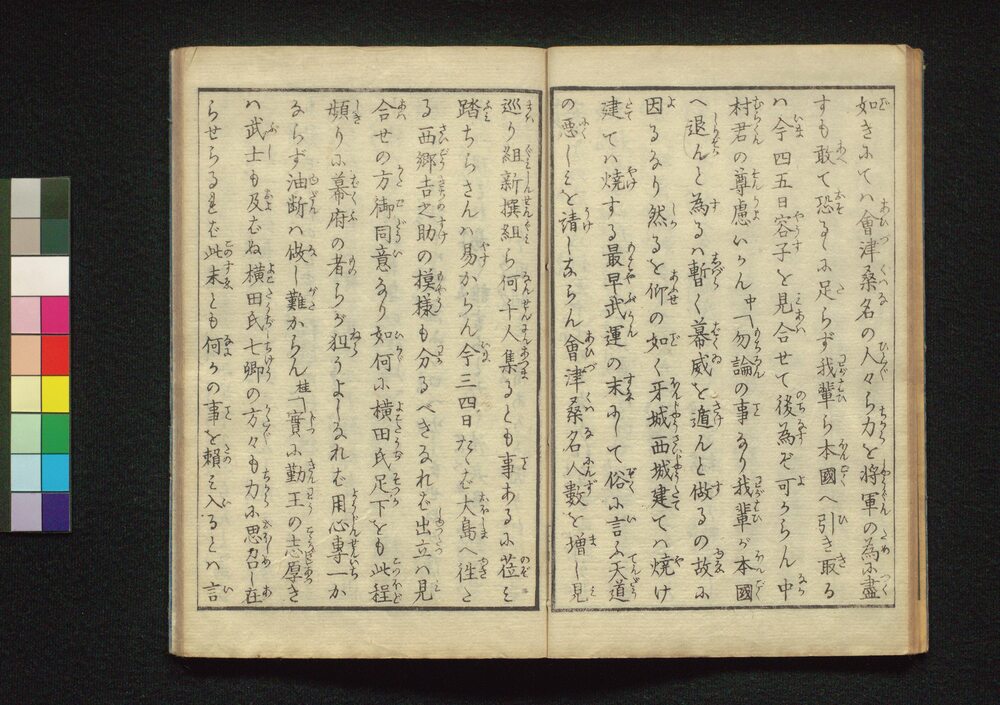 如きにてハ會津桑名の人々ら力と将軍の為に盡
すも敢て恐るゝに足らず我輩ら本國へ引き取る
ハ今四五日容子を見合せて後為ぞ可からん中
村君の尊慮いかん中「勿論の事なり我輩が本國
へ退んと為るハ暫く幕威を遁んと做るの故に
因るなり然るを仰の如く牙城西城建てハ焼け
建てハ焼する最早武運の末にして俗に言ふ天道
の悪しみを請しならん會津桑名人數を増し見
巡り組新撰組ら何千人集るとも事あるに莅み
踏ちらさんハ易からん今三四日たゝば大島へ徃た
る西郷吉之助の模様も分るべきなれば出立ハ見
合せの方御同意なり如何に横田氏足下をも此程
頻りに幕府の者らが狙うよしなれば用心專一か
ならず油断ハ做し難からん桂「實に勤王の志厚き
ハ武士も及ばぬ横田氏七卿の方々も力に思召し在
らせらるれば此末とも何かの事を頼み入るとハ言